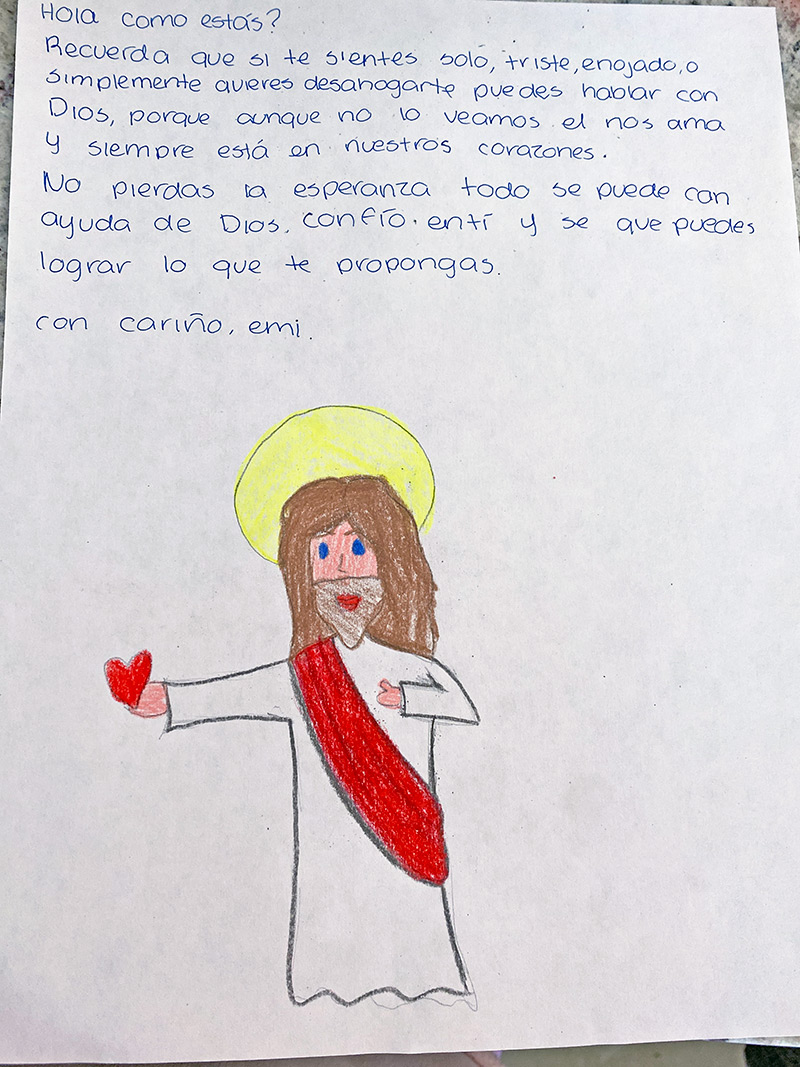 Hola como estás?
Recuerda que si te sientes solo, triste, enojado, o
simplemente quieres desahogarte puedes hablar con
Dios, porque aunque no lo veamos el nos ama
y siempre está en nuestros corazones.
No pierdas la esperanza todo se puede con
ayuda de Dios, confío. entí y se que puedes
lograr lo que te propongas.
con cariño, emi.